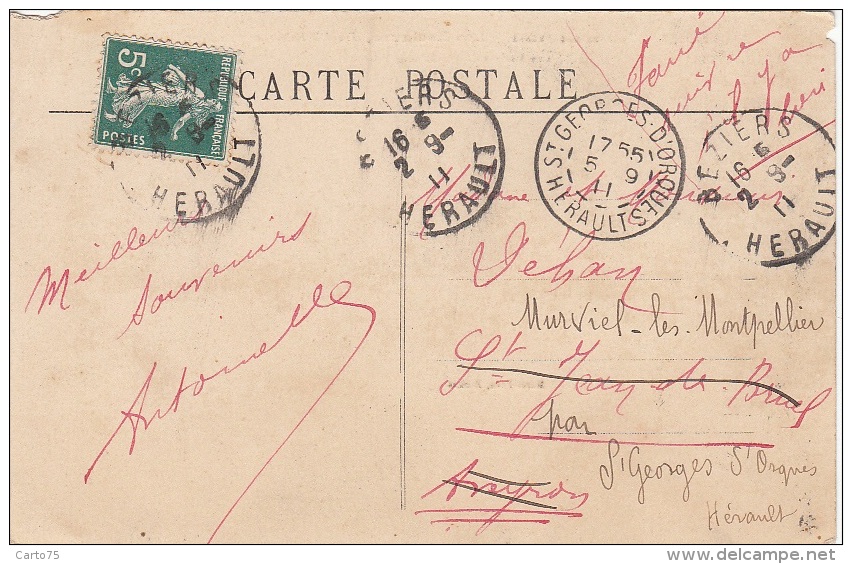 CARTE POSTALE
5c
REPUBLIQUE FRANÇAISE
POSTES
BEZIERS
16 5
2 9-
11
HERAULT
BEZIERS
16 5
2 9-
11
HERAULT
ST GEORGES-D'ORQUES
17 55
5 9
11
HERAULT
BEZIERS
16 5
2 9-
11
HERAULT
il y a
Meilleurs
Souvenirs
Antoinette
Monsieur
Déhan
Murviel-les-Montpellier
St Jean du Bruel
par
St Georges d'Orques
Aveyron
Hérault
Carto75
delcampe.net